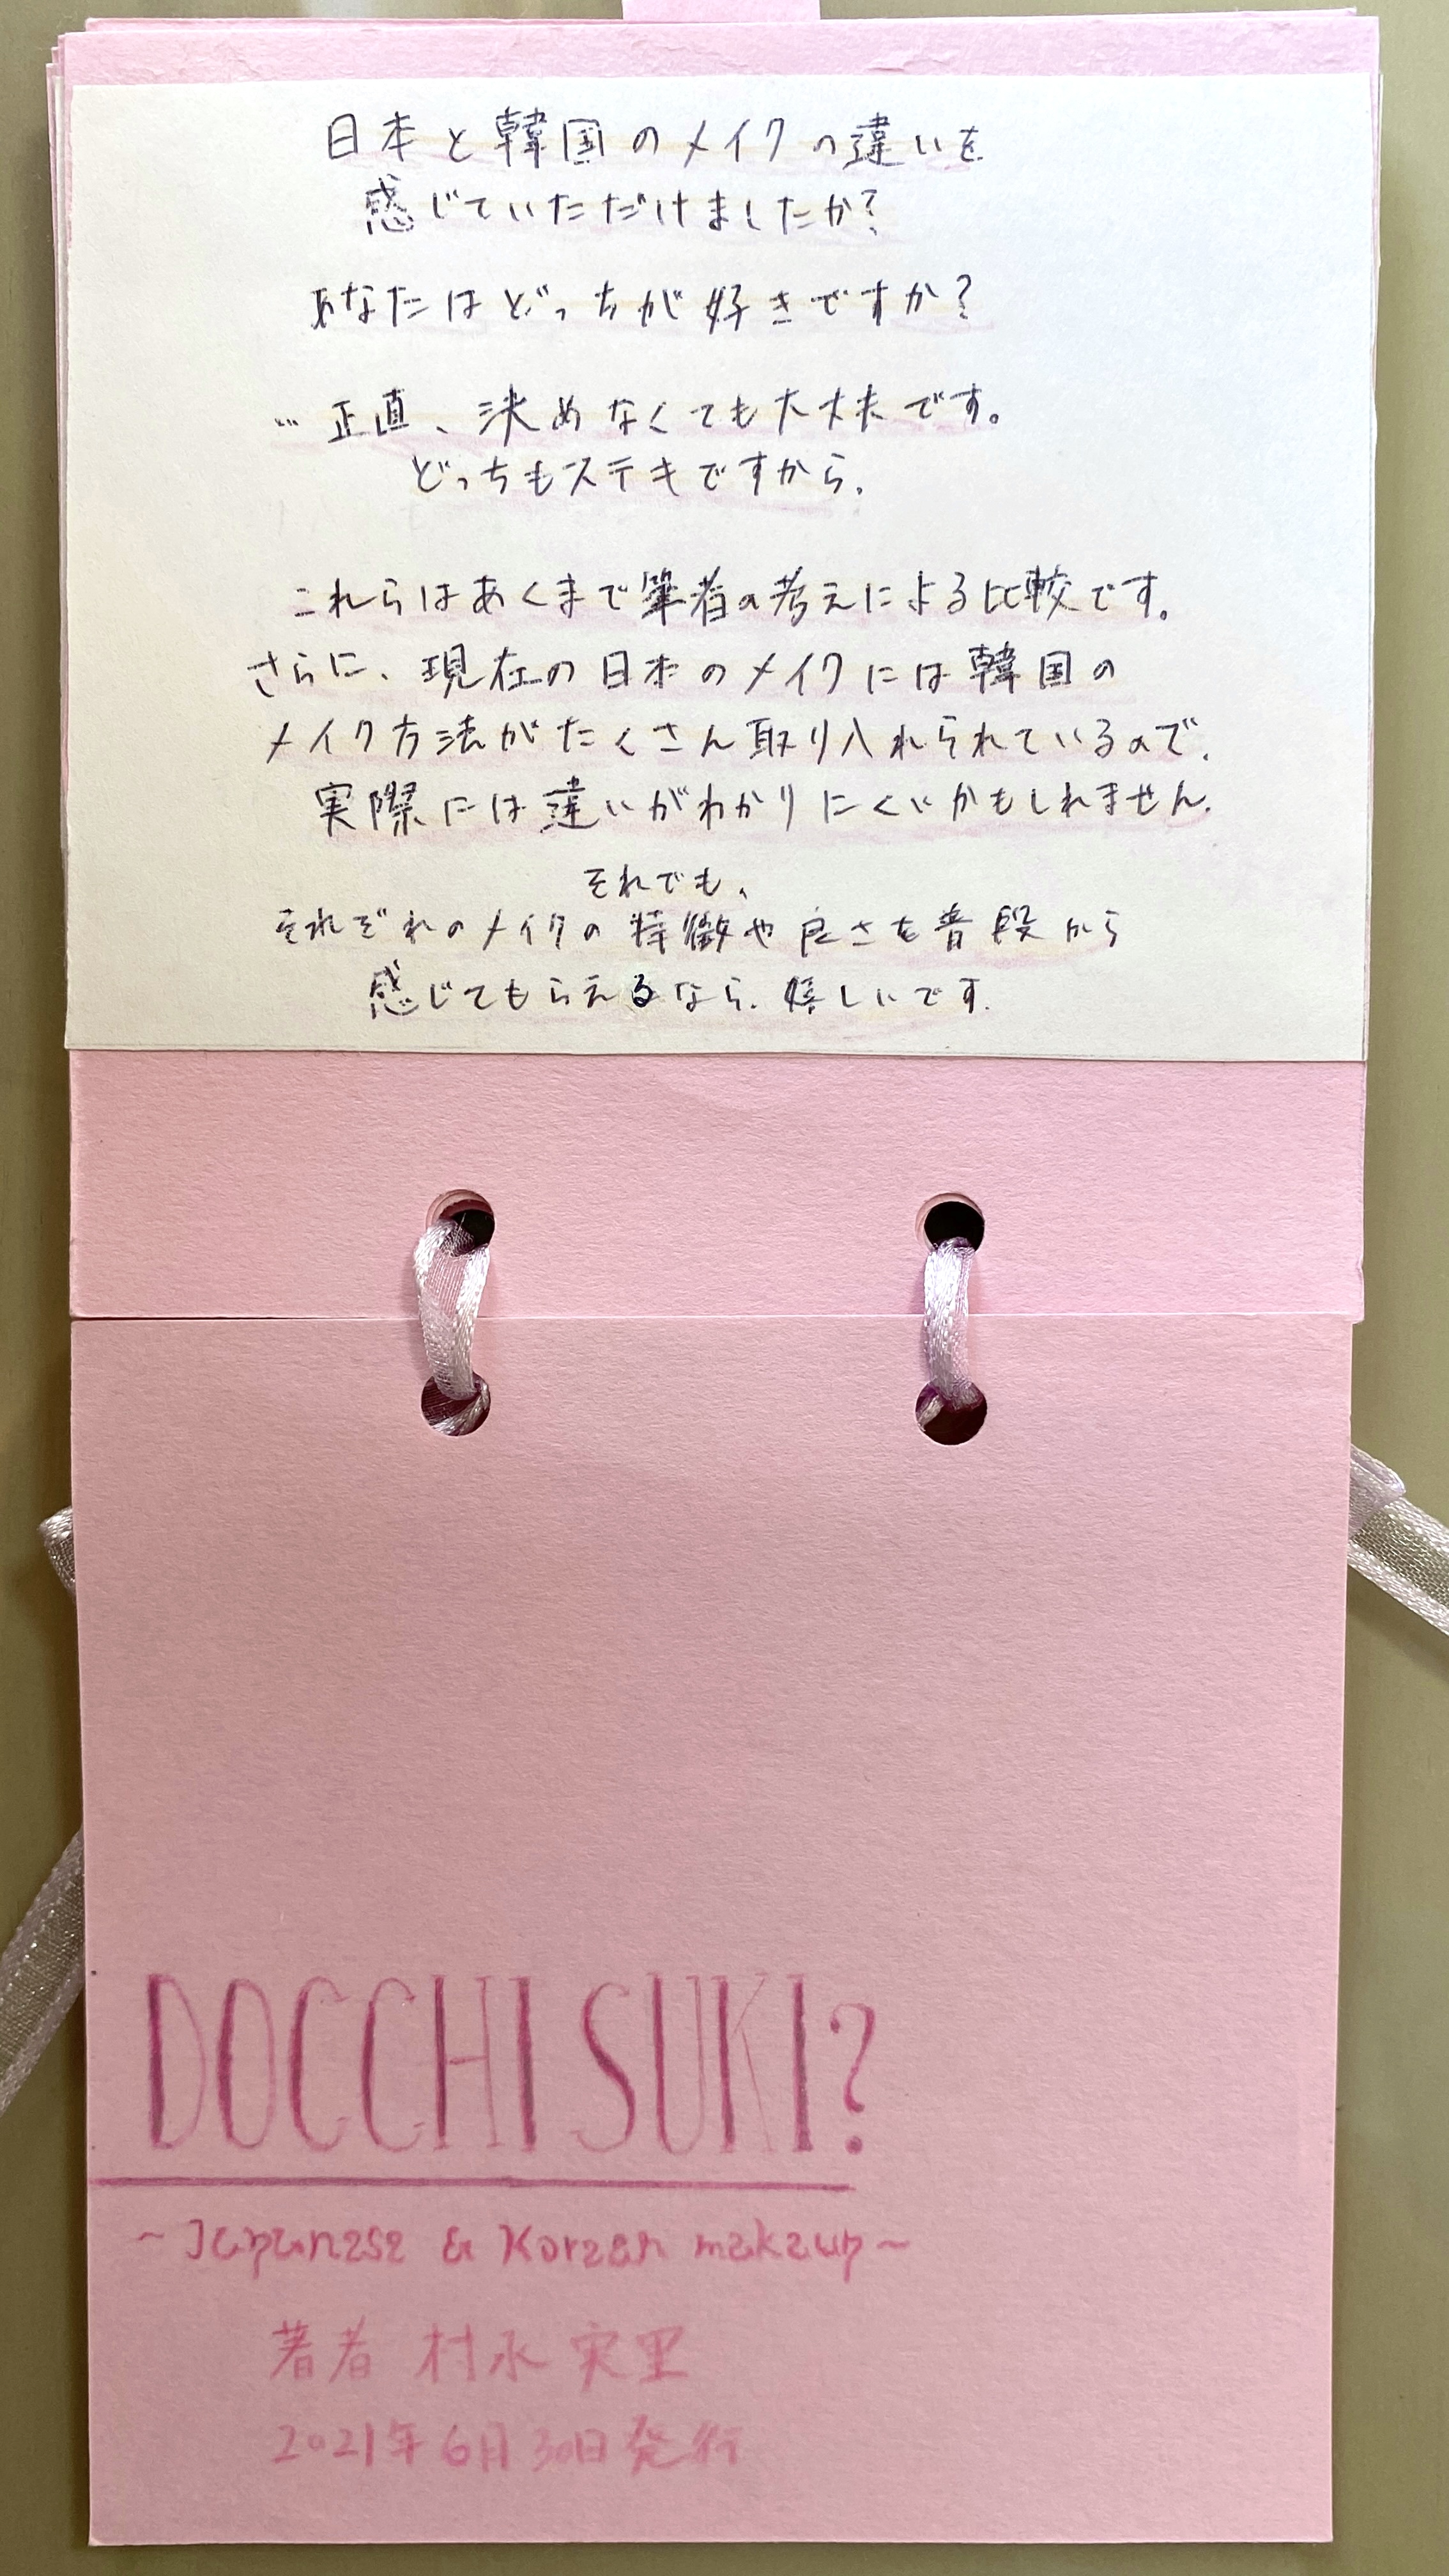 日本と韓国のメイクの違いを
感じていただけましたか?
あなたはどっちが好きですか?
…正直、決めなくても大丈夫です。
どっちもステキですから。
これらはあくまで筆者の考えによる比較です。
さらに、現在の日本のメイクには韓国の
メイク方法がたくさん取り入れられているので、
実際には違いがわかりにくいかもしれません。
それでも、
それぞれのメイクの特徴や良さを普段から
感じてもらえるなら、嬉しいです。
DOCCHI SUKI?
~Japanese & Korean makeup~
著者 村永 実里
2021年6月30日発行